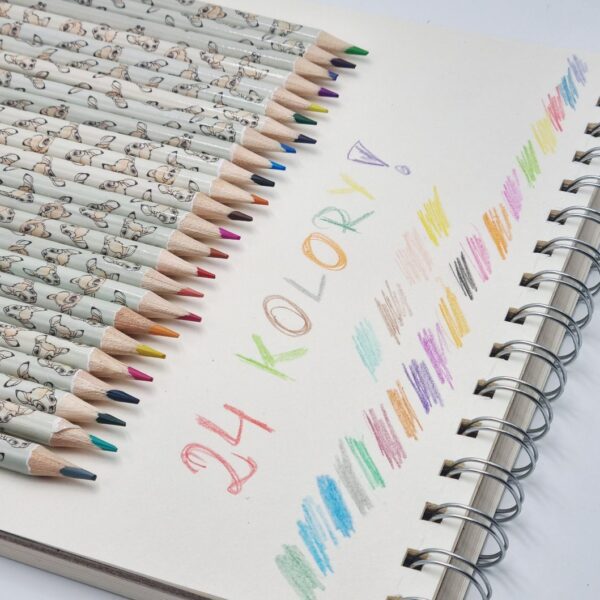 24 KOLORY!